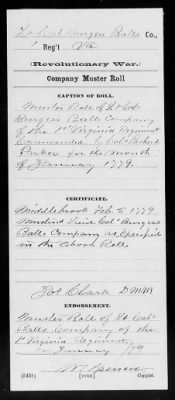 Lt Col Burges Balls Co.,
1 Reg't Va
(Revolutionary War.)
Company Muster Roll
CAPTION OF ROLL.
Muster Roll of Lt Colo
Burges Balls Company
of the 1st Virginia Regiment
Commanded by Colo Richard
Parker for the month
of January 1779.
CERTIFICATE.
Middlebrook Feb. 5 1779
Mustered Lieut Colo Burges
Balls Company as Specified
in the above Roll
Jos Clark D M M
ENDORSEMENT.
Muster Roll of Lt Colo
Balls Company of the
1st Virginia Regiment
January /79
Copyist.